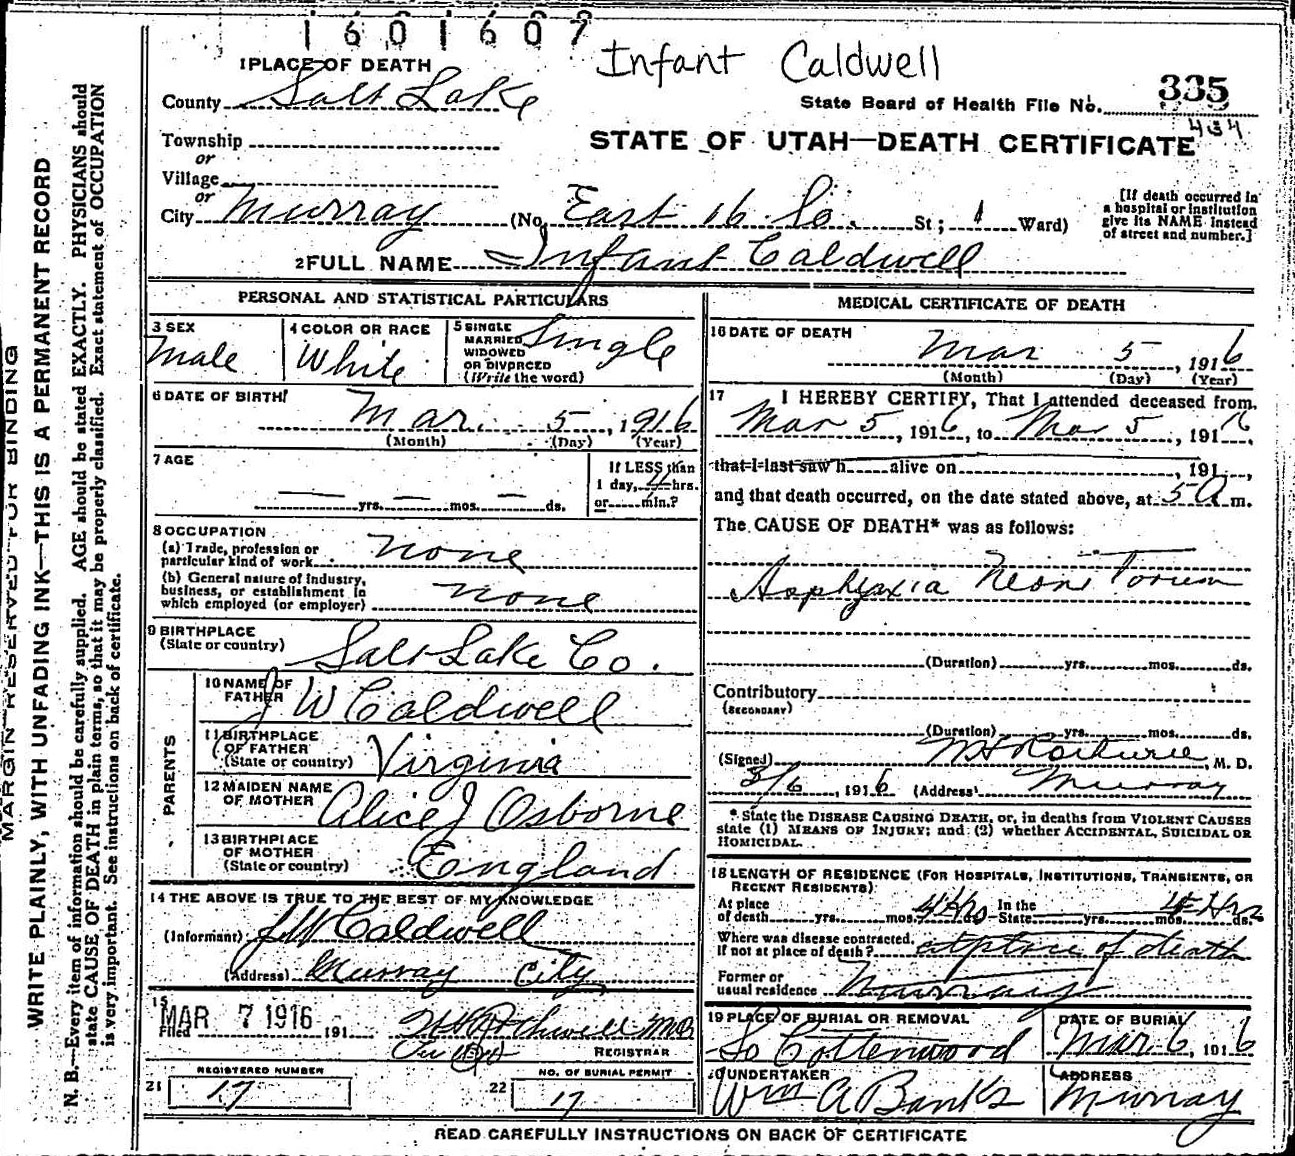 1601607
Infant Caldwell
1 PLACE OF DEATH
County Salt Lake
State Board of Health File No. 335
434
Township
or
STATE OF UTAH—DEATH CERTIFICATE
Village
or
City Murray (No. East 16 So. St; 1 Ward)
[If death occurred in a hospital or institution give its NAME instead of street and number.]
2 FULL NAME Infant Caldwell
PERSONAL AND STATISTICAL PARTICULARS
3 SEX Male
4 COLOR OR RACE White
5 SINGLE MARRIED WIDOWED OR DIVORCED (Write the word) Single
6 DATE OF BIRTH Mar. 5, 1916
(Month) (Day) (Year)
7 AGE
yrs. mos. ds.
If LESS than
1 day, 4 hrs.
or min.?
8 OCCUPATION
(a) Trade, profession or particular kind of work none
(b) General nature of industry, business, or establishment in which employed (or employer) none
9 BIRTHPLACE
(State or country) Salt Lake Co.
PARENTS
10 NAME OF FATHER J W Caldwell
11 BIRTHPLACE OF FATHER
(State or country) Virginia
12 MAIDEN NAME OF MOTHER Alice J Osborne
13 BIRTHPLACE OF MOTHER
(State or country) England
14 THE ABOVE IS TRUE TO THE BEST OF MY KNOWLEDGE
(Informant) J W Caldwell
(Address) Murray City
15
Filed MAR 7 1916 191
REGISTRAR
21 REGISTERED NUMBER 17
22 NO. OF BURIAL PERMIT 17
MEDICAL CERTIFICATE OF DEATH
16 DATE OF DEATH
Mar 5, 1916
(Month) (Day) (Year)
17 I HEREBY CERTIFY, That I attended deceased from
Mar 5, 1916, to Mar 5, 1916,
that I last saw h alive on , 191 ,
and that death occurred, on the date stated above, at 5 A m.
The CAUSE OF DEATH* was as follows:
Asphyxia Neonitorum
(Duration) yrs. mos. ds.
Contributory
(SECONDARY)
(Duration) yrs. mos. ds.
(Signed) , M. D.
3/6, 1916 (Address) Murray
* State the DISEASE CAUSING DEATH, or, in deaths from VIOLENT CAUSES
state (1) MEANS OF INJURY; and (2) whether ACCIDENTAL, SUICIDAL OR
HOMICIDAL.
18 LENGTH OF RESIDENCE (FOR HOSPITALS, INSTITUTIONS, TRANSIENTS, OR
RECENT RESIDENTS)
At place of death yrs. mos. 4 Hrs ds. In the State yrs. mos. 4 Hrs ds.
Where was disease contracted, If not at place of death? at place of death
Former or usual residence Murray
19 PLACE OF BURIAL OR REMOVAL So Cottonwood
DATE OF BURIAL Mar 6, 1916
20 UNDERTAKER Wm A Banks
ADDRESS Murray
READ CAREFULLY INSTRUCTIONS ON BACK OF CERTIFICATE
MARGIN RESERVED FOR BINDING
WRITE PLAINLY, WITH UNFADING INK—THIS IS A PERMANENT RECORD
N. B.—Every item of information should be carefully supplied. AGE should be stated EXACTLY. PHYSICIANS should
state CAUSE OF DEATH in plain terms, so that it may be properly classified. Exact statement of OCCUPATION
is very important. See instructions on back of certificate.